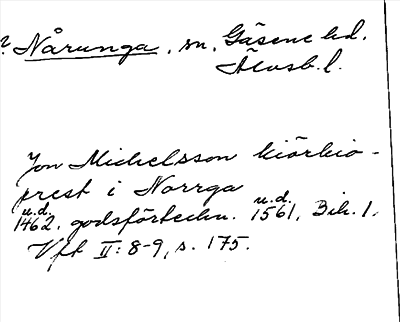 ? Nårunga, sn, Gäsene hd.
Älvsb. l.
Jon Michelsson kiörkio-
prest i Norrga
u.d. u.d.
1462. godsförteckn. 1561, Bih. 1.
Vft II: 8-9, s. 175.